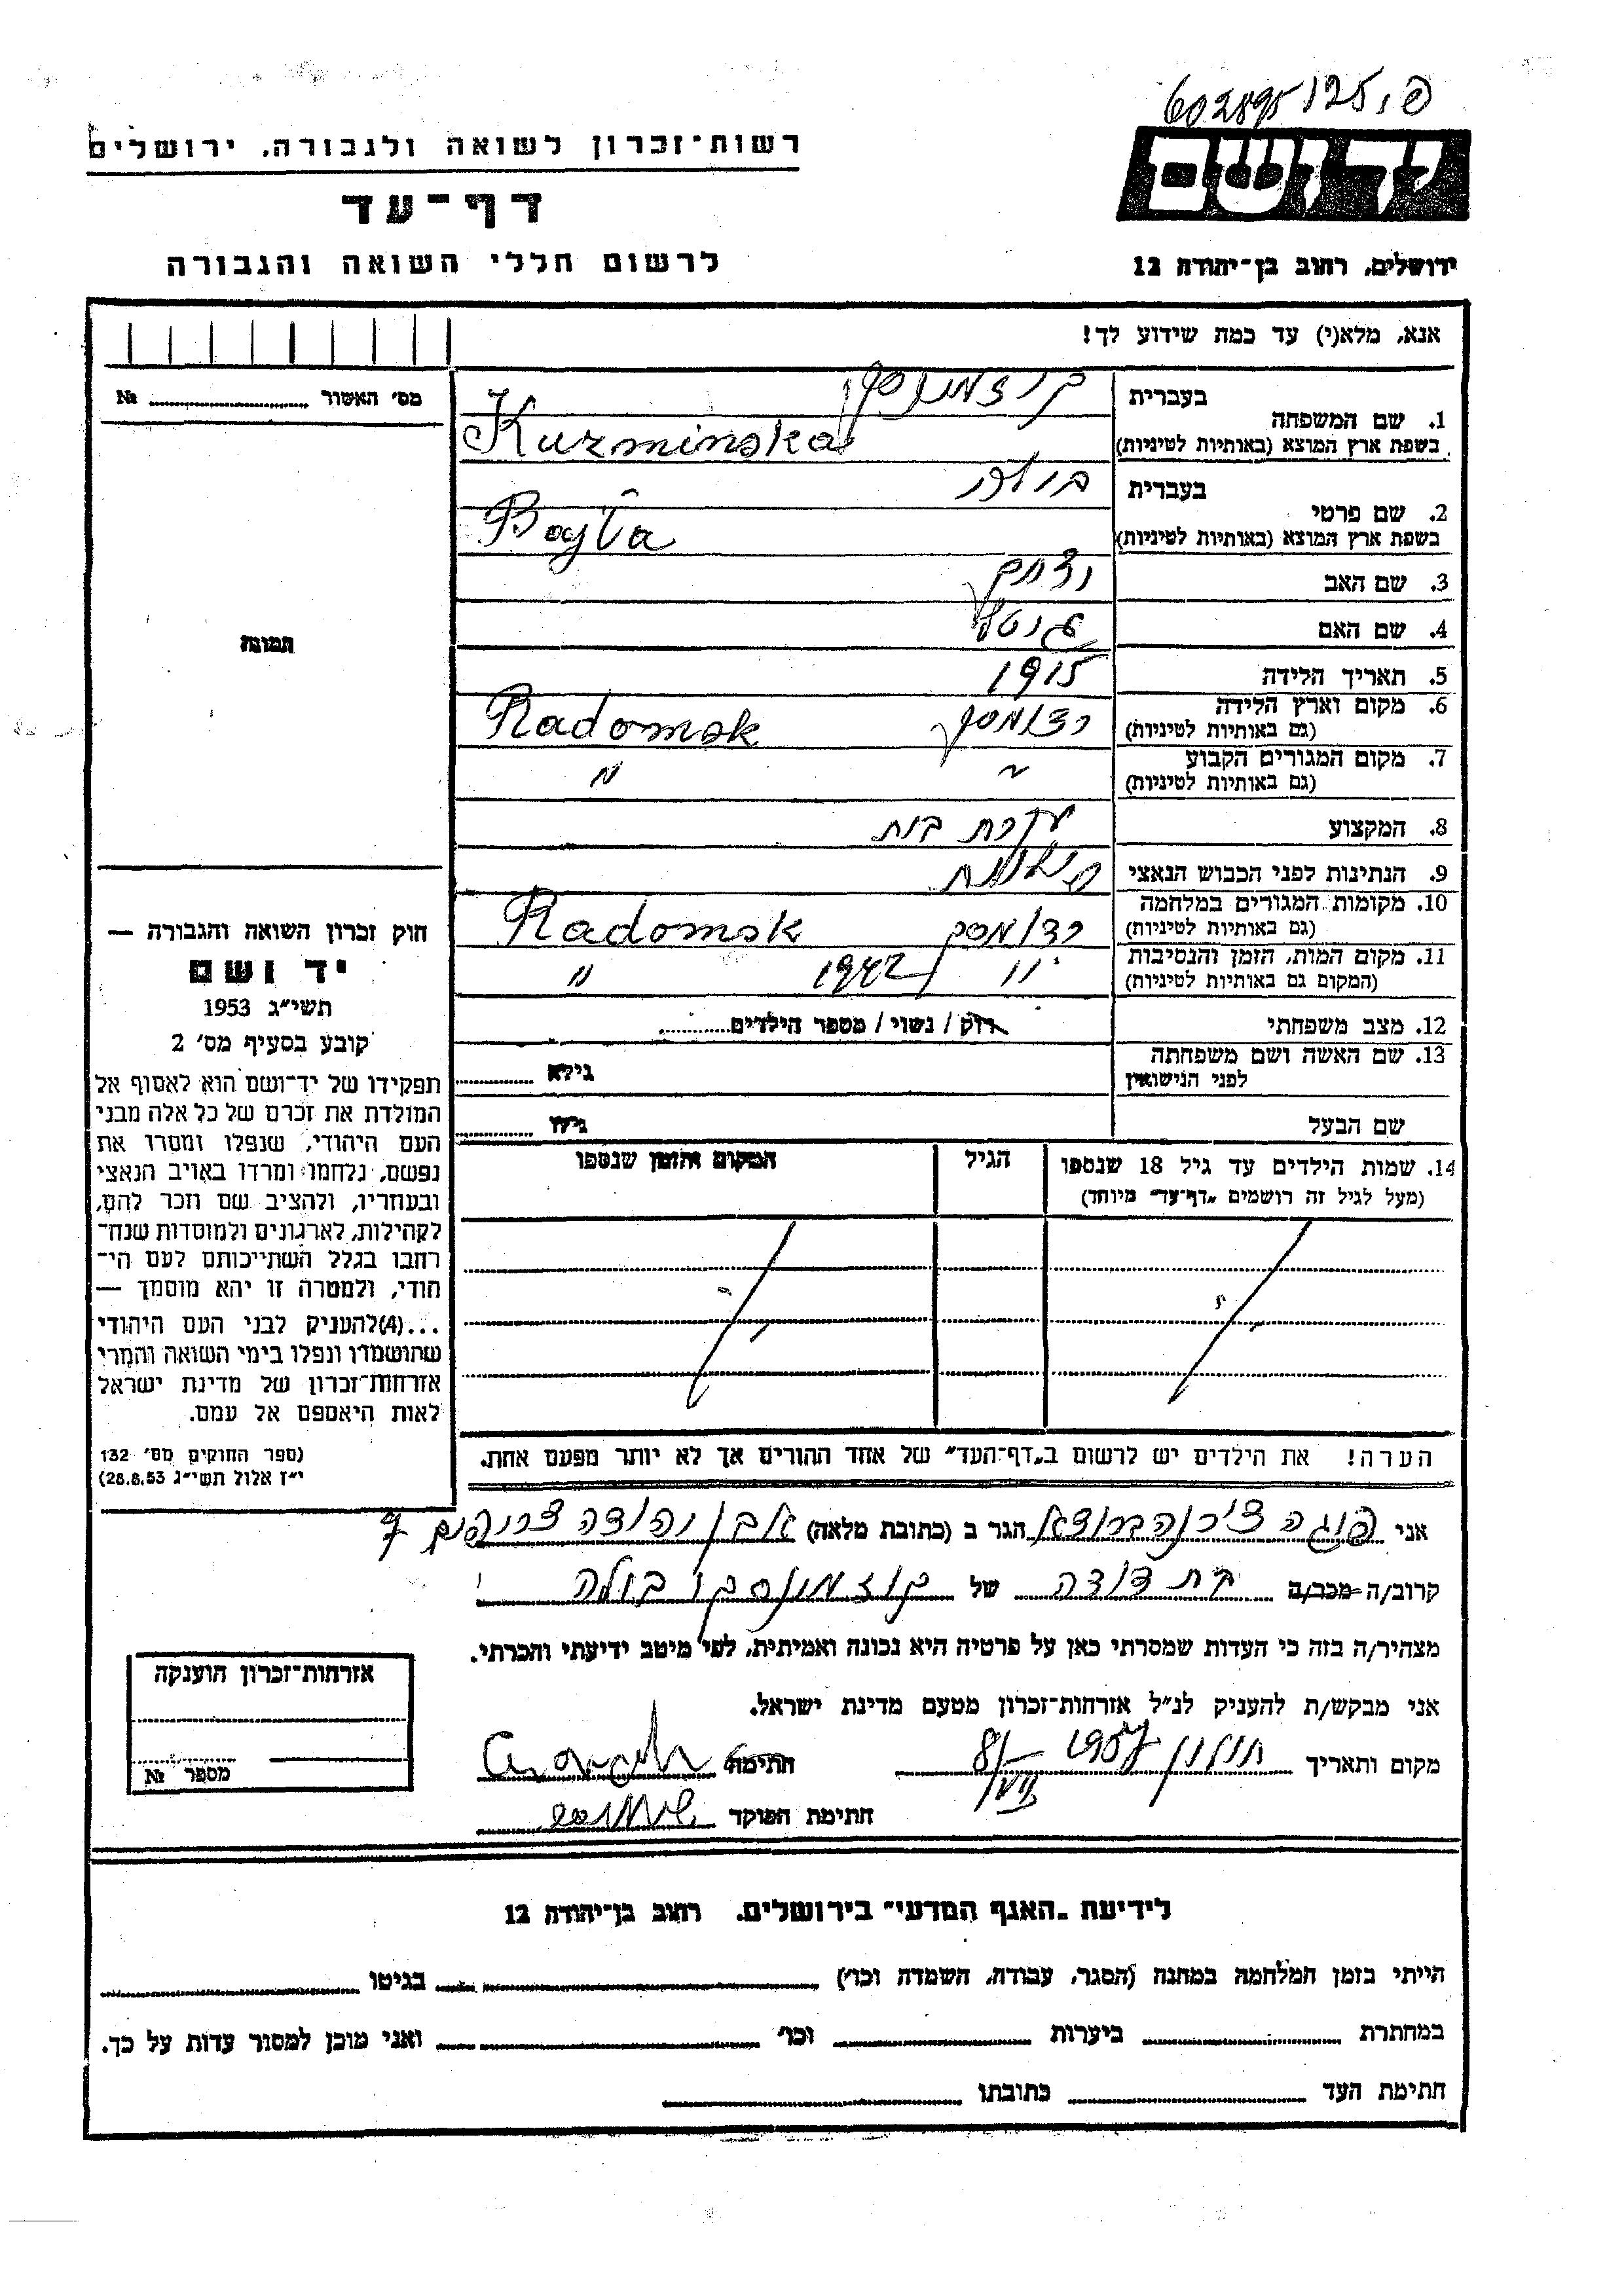 602895 125,פ
יד ושם
רשות־זכרון לשואה ולגבורה, ירושלים
דף־עד
לרשום חללי השואה והגבורה
ירושלים, רחוב בן־יהודה 12
אנא, מלא(י) עד כמה שידוע לך!
מס׳ האשור № ........
בעברית
1. שם המשפחה
בשפת ארץ המוצא (באותיות לטיניות) Kuzminska
בעברית
2. שם פרטי
בשפת ארץ המוצא (באותיות לטיניות)
3. שם האב יצחק
4. שם האם
5. תאריך הלידה 1915
6. מקום וארץ הלידה Radomsk
(גם באותיות לטיניות)
7. מקום המגורים הקבוע " "
(גם באותיות לטיניות)
8. המקצוע עקרת בית
9. הנתינות לפני הכבוש הנאצי
10. מקומות המגורים במלחמה רדומסק Radomsk
(גם באותיות לטיניות)
11. מקום המות, הזמן והנסיבות " 1942 "
(המקום גם באותיות לטיניות)
12. מצב משפחתי רוק / נשוי / מספר הילדים........
13. שם האשה ושם משפחתה גילא ........
לפני הנישואין
שם הבעל גילו ........
14. שמות הילדים עד גיל 18 שנספו הגיל המקום והזמן שנספו
(מעל לגיל זה רושמים „דף־עד״ מיוחד)
הערה! את הילדים יש לרשום ב„דף־העד״ של אחד ההורים אך לא יותר מפעם אחת.
תמונה
חוק זכרון השואה והגבורה —
יד ושם
תשי״ג 1953
קובע בסעיף מס׳ 2
תפקידו של יד־ושם הוא לאסוף אל
המולדת את זכרם של כל אלה מבני
העם היהודי, שנפלו ומסרו את
נפשם, נלחמו ומרדו באויב הנאצי
ובעוזריו, ולהציב שם וזכר להם,
לקהילות, לארגונים ולמוסדות שנח־
רחבו בגלל השתייכותם לעם הי־
חודי, ולמטרה זו יהא מוסמך —
...(4)להעניק לבני העם היהודי
שהושמדו ונפלו בימי השואה והמרי
אזרחות־זכרון של מדינת ישראל
לאות היאספם אל עמם.
(ספר החוקים מס׳ 132
י״ז אלול תשי״ג 28.8.53)
אני הגר ב (כתובת מלאה) אבן יהודה צריפים 7
קרוב/ה מכר/ה בת דודה של
מצהיר/ה בזה כי העדות שמסרתי כאן על פרטיה היא נכונה ואמיתית, לפי מיטב ידיעתי והכרתי.
אני מבקש/ת להעניק לנ״ל אזרחות־זכרון מטעם מדינת ישראל.
מקום ותאריך 8/VII 1957 חתימה
חתימת הפוקד
אזרחות־זכרון הוענקה
מספר №
לידיעת „האגף המדעי״ בירושלים. רחוב בן־יהודה 12
הייתי בזמן המלחמה במחנה (הסגר, עבודה, השמדה וכו׳) בגיטו
במחתרת ביערות וכו׳ ואני מוכן למסור עדות על כך.
חתימת העד כתובתו